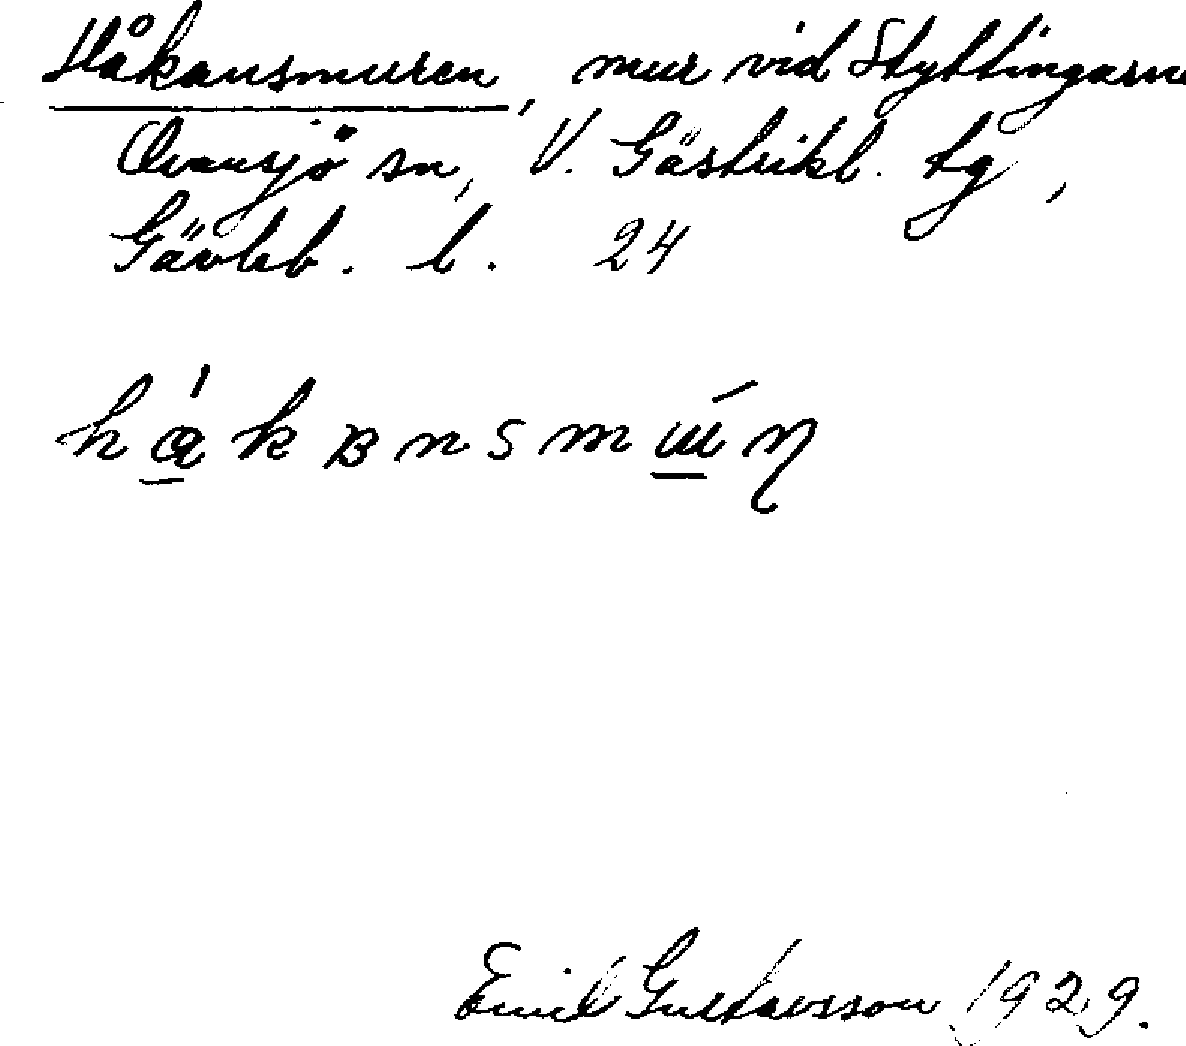 Håkansmuren, mur vid Styttingarna
Ovansjö sn, V. Gästrikl. tg,
Gävleb. l. 24
hą́kʙnsmuń̡
Emil Gustavsson 1929.